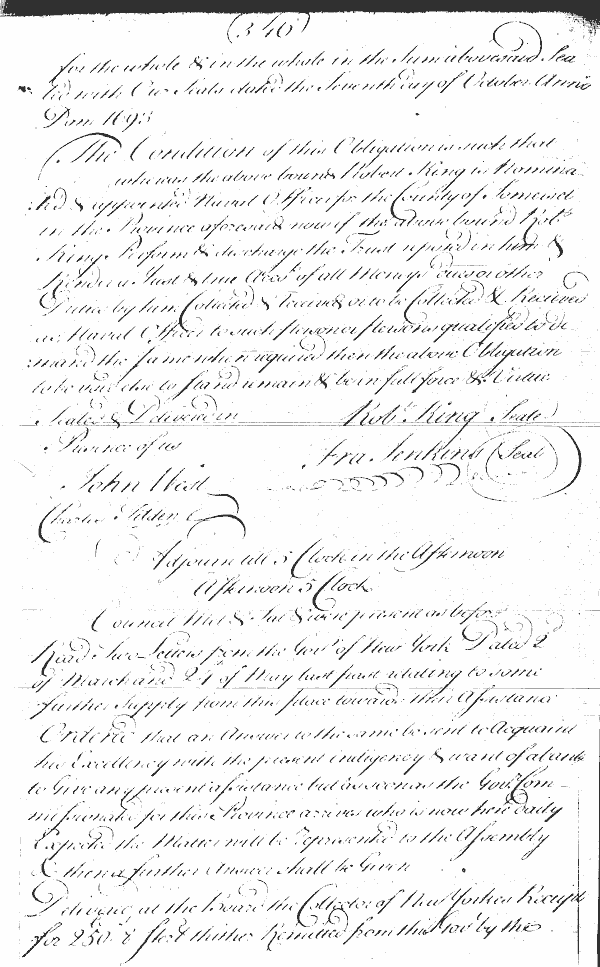 (346)
for the whole & in the whole in the Sum abovesaid Sea
led with Our Seals dated the Seventh day of October Annõ
Dom 1693
The Condition of this Obligation is such that
whereas the above bound Robert King is Nomina
ted & appointed Naval Officer for the County of Somerset
in the Province aforesaid now if the above bound Robᵗ
King Perform & discharge the Trust reposed in him &
Render a Just & true Accᵗ of all Moneys dues or other
Duties by him Collected & received or to be Collected & Received
as Naval Officer to such person or persons qualified to de
mand the same when required then the above Obligation
to be void else to stand remain & be in full force & Virtue
Sealed & Delivered in Robᵗ King Seale
Presence of us
Fra Jenkins (Seal)
John West
Charles Tilden
Adjourn till 5 Clock in the Afternoon
Afternoon 5 Clock
Council Met & Sat & were present as before
Read Two Letters from the Govʳ of New York Dated 2ᵈ
of March and 24 of May last past relating to some
further Supply from this place towards their Assistance
Ordered that an Answer to the same be sent to Acquaint
his Excellency with the present indigency & want of ability
to Give any present assistance but as soon as the Govʳ Com-
missionated for this Province arrives who is now here daily
Expected the Matter will be represented to the Assembly
& then a further Answer shall be Given
Delivered at the Board the Collector of New Yorkes Receipt
for 250 Sterl thither Remitted from this by the